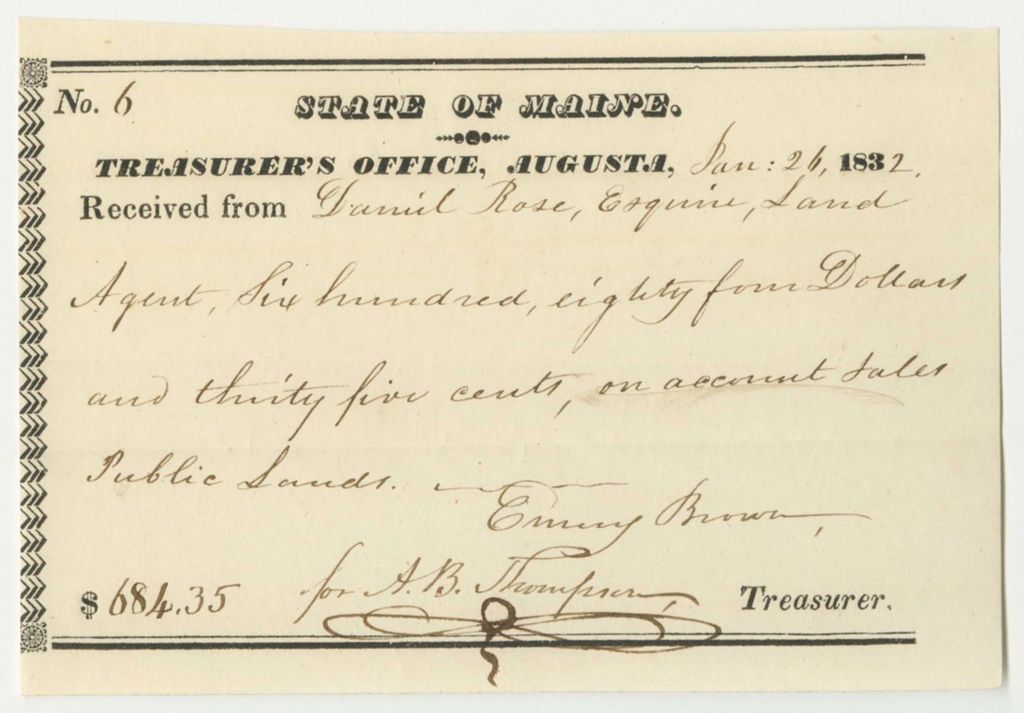 No. 6 STATE OF MAINE.
TREASURER'S OFFICE, AUGUSTA, Jan: 26, 1832.
Received from Daniel Rose, Esquire, Land
Agent, Six hundred, eighty four Dollars
and thirty five cents, on account Sales
Public Lands.
Emery Brown,
$ 684.35 for A. B. Thompson, Treasurer.